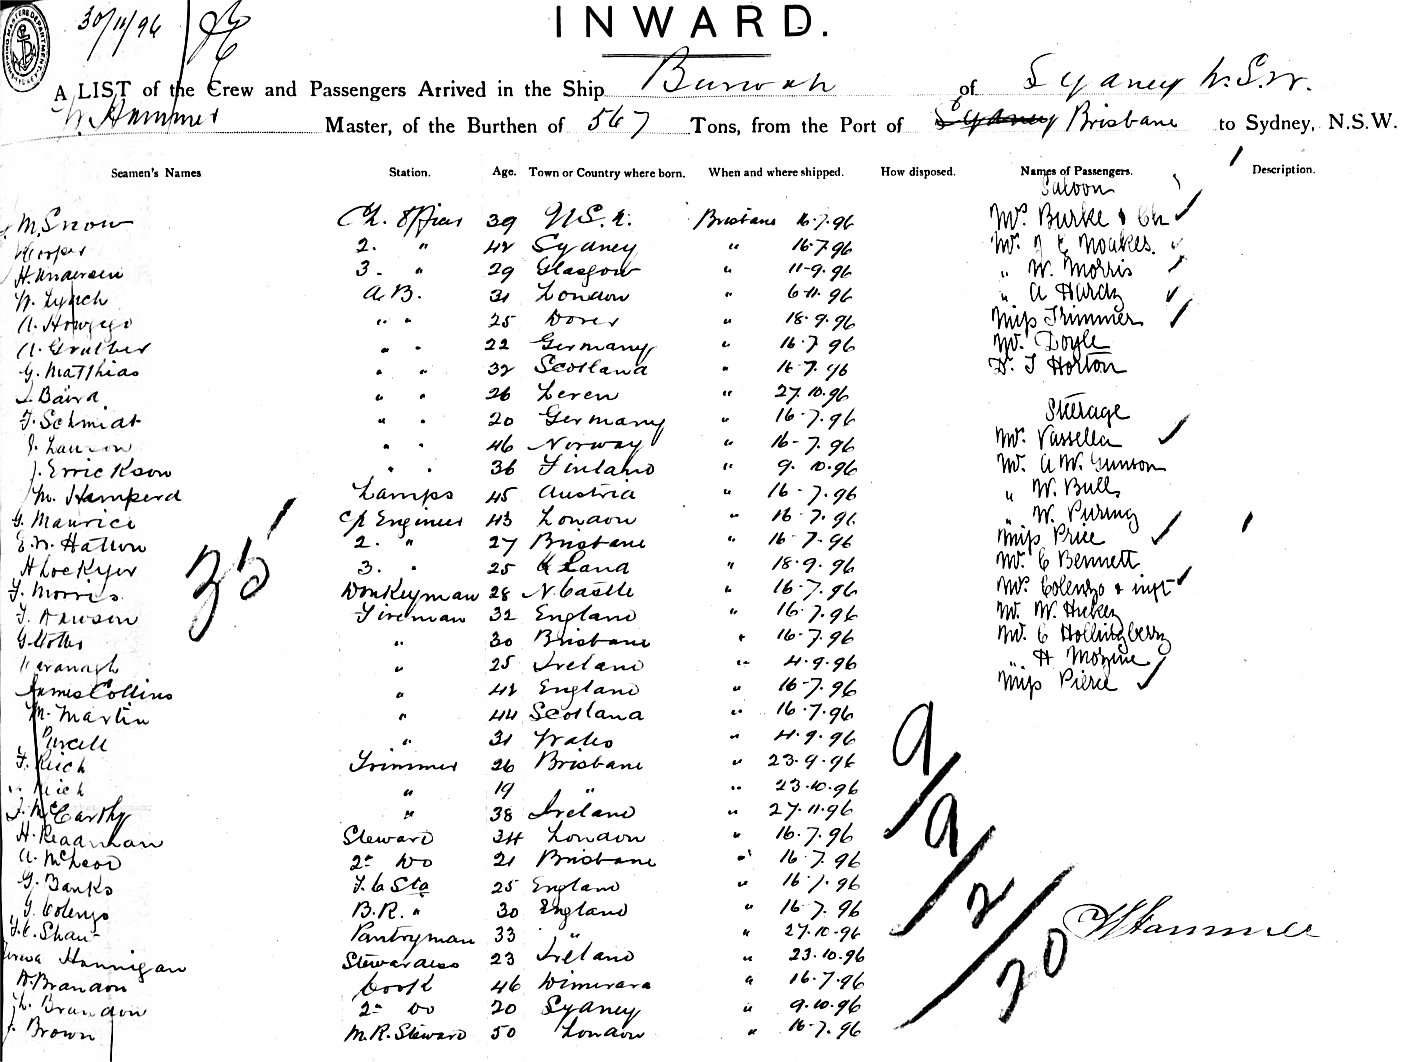 30/11/96
INWARD.
A LIST of the Crew and Passengers Arrived in the Ship Burwah of Sydney N.S.W.
W. Hammer Master, of the Burthen of 567 Tons, from the Port of Sydney Brisbane to Sydney, N.S.W.
Seamen's Names Station. Age. Town or Country where born. When and where shipped. How disposed. Names of Passengers. Description.
Saloon
M. Snow Ch. Officer 39 N.S. Brisbane 16.7.96 Mrs. Burke & Ch
Cooper 2. " 42 Sydney " 16.7.96 Mr. J E Noakes.
H. Andersen 3. " 29 Glasgow " 11-9.96 " W. Morris
W. Lynch A.B. 31 London " 6-11.96 " A Hardy
A. Howgego " " 25 Dover " 18.9.96 Miss Trimmer
A. " " 22 Germany " 16.7.96 Mr. Doyle
G. Matthias " " 32 Scotland " 16.7.96 Dr. T Horton
Baird " " 26 Leven " 27.10.96
F. Schmidt " " 20 Germany " 16-7.96 Steerage
" " 46 Norway " 16-7.96 Mr. Vassella
J. Errickson " " 36 Finland " 9.10.96 Mr. A.W. Gunson
M. Hamperd Lamps 45 Austria " 16-7.96 " W. Bull
G. Maurice Ch Engineer 43 London " 16-7.96 " W.
E.W. Hatton 2. " 27 Brisbane " 16-7.96 Miss Price
H Lockyer 3. " 25 Land " 18.9.96 Mr. C Bennett
F. Morris. Donkeyman 28 N. Castle " 16-7.96 Mrs. Colenzo & inft
35
T. Dawson Fireman 32 England " 16.7.96 Mr. W. Hickey
G. " 30 Brisbane " 16-7.96 Mr. C Hollingberry
Kavanagh " 25 Ireland " 4.9.96 " H
James Collins " 42 England " 16-7.96 Miss Pierce
M. Martin " 44 Scotland " 16.7.96
Purcell " 31 Wales " 4.9.96
F. Reich Trimmer 26 Brisbane " 23.9.96
Reich " 19 " " 23.10.96
J. McCarthy " 38 Ireland " 27.11.96
H. Readman Steward 34 London " 16.7.96
A. McLeod 2nd Do 21 Brisbane " 16.7.96
G. Banks F.C Sta 25 England " 16.7.96
J. Colenzo B.R. " 30 England " 16.7.96
F.C. Shaw Pantryman 33 " " 27.10.96
Hannigan Stewardess 23 Ireland " 23.10.96
A. Brandon Cook 46 Wimerara " 16.7.96
L. Brandon 2nd Do 20 Sydney " 9.10.96
J. Brown M.R. Steward 50 London " 16-7.96
9/9/2/20
W Hammer